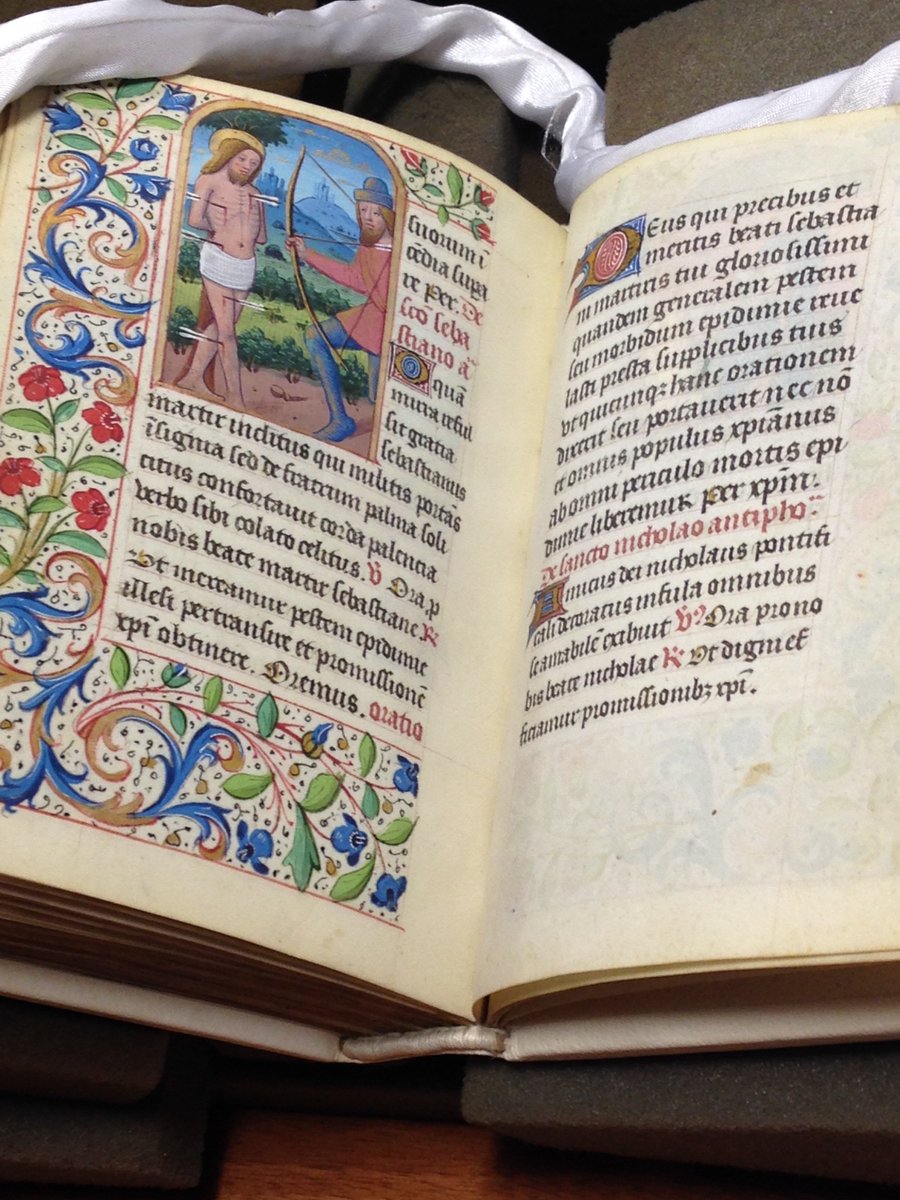 suorum i
cēdia supa
re per. De
scō seba
stiano aᵃ
O quā
mira reful
sit gratia
sebastianus
martir inclitus qui militis portās
īsignia sed de fratrum palma soli
citus confortauit corda palencia
verbo sibi colato celitus. V Ora p
nobis beate martir sebastiane R
Ut mereamur pestem epidimie
illesi pertransire et promissionē
xpī obtinere. Oremus. oratio
Deus qui precibus et
meritis beati sebastia
ni martiris tui gloriosissimi
quandam generalem pestem
seu morbidum epidimie reue
lasti presta supplicibus tuis
vt quicunqz hanc orationem
dixerit seu portauerit nec nō
et omnis populus xpīanus
ab omni periculo mortis epi
dimie liberemur per xpīm.
De sancto nicholao antipho
Amicus dei nicholaus pontifi
cali decoratus infula omnibus
se amabilē exibuit V Ora pro no
bis beate nicholae R Ut digni ef
ficiamur promissionibz xpī.